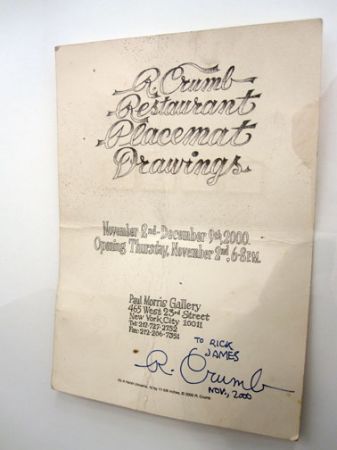 R. Crumb
Restaurant
Placemat
Drawings
November 2nd-December 9th, 2000
Opening Thursday, November 2nd, 6-8 P.M.
Paul Morris Gallery
465 West 23rd Street
New York City 10011
Tel: 212-727-2752
Fax: 212-206-7351
TO RICK
JAMES
R. Crumb
NOV., 2000